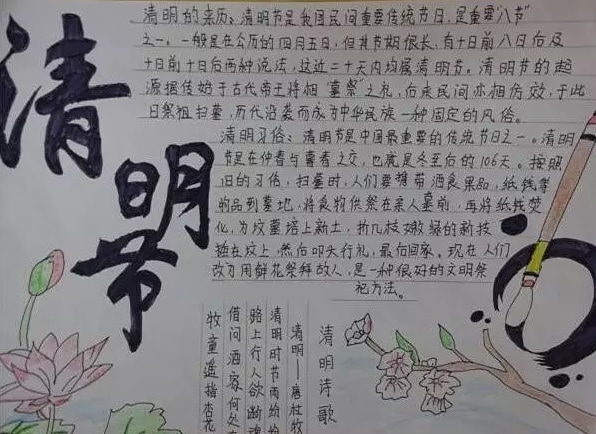 清明节
清明的来历：清明节是我国民间重要传统节日，是重要"八节"
之一。一般是在公历的四月五日，但其节期很长，有十日前八日后及
十日前十日后两种说法，这近二十天内均属清明节。清明节的起
源据传始于古代帝王将相"墓祭"之礼，后来民间亦相仿效，于此
日祭祖扫墓，历代沿袭而成为中华民族一种固定的风俗。
清明习俗：清明节是中国最重要的传统节日之一。清明
节是在仲春与暮春之交，也就是冬至后的106天。按照
旧的习俗，扫墓时，人们要携带酒食果品，纸钱等
物品到墓地，将食物供祭在亲人墓前，再将纸钱焚
化，为坟墓培上新土，折几枝嫩绿的新枝
插在坟上，然后叩头行礼，最后回家。现在人们
改为用鲜花祭拜故人，是一种很好的文明祭
祀方法。
清明诗歌
清明——唐杜牧
清明时节雨纷纷
路上行人欲断魂
借问酒家何处
牧童遥指杏花